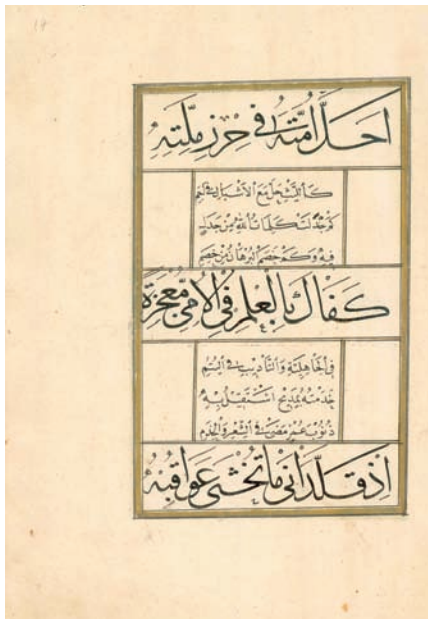 ١٩
اَحَلَّ اُمَّتَهُ فِى حِرْزِ مِلَّتِهِ
كَاللَّيْثِ حَلَّ مَعَ الْاَشْبَالِ فِى اَجَمِ
كَمْ جَدَّلَتْ كَلِمَاتُ اللّٰهِ مِنْ جَدِلٍ
فِيهِ وَكَمْ خَصَمَ الْبُرْهَانُ مِنْ خَصِمِ
كَفَاكَ بِالْعِلْمِ فِى الْاُمِّىِّ مُعْجِزَةً
فِى الْجَاهِلِيَّةِ وَالتَّأْدِيبِ فِى الْيُتُمِ
خَدَمْتُهُ بِمَدِيحٍ اَسْتَقِيلُ بِهِ
ذُنُوبَ عُمْرٍ مَضَى فِى الشِّعْرِ وَالْخِدَمِ
اِذْ قَلَّدَانِىَ مَا تُخْشَى عَوَاقِبُهُ